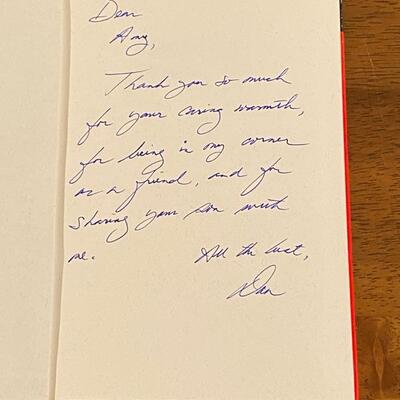 Dear
Amy,
Thank you so much
for your caring warmth,
for being in my corner
as a friend, and for
sharing your son with
me.
All the best,
Dan